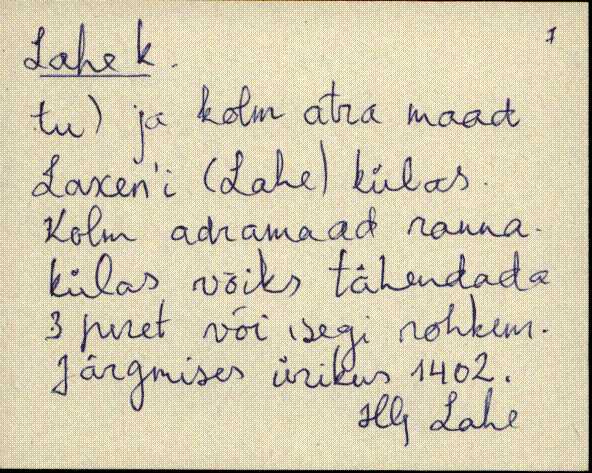 1
Lahe k.
tu) ja kolm atra maad
Laxen'i (Lahe) külas.
Kolm adramaad ranna-
külas võiks tähendada
3 peret või isegi rohkem.
Järgmises ürikus 1402.
Lahe